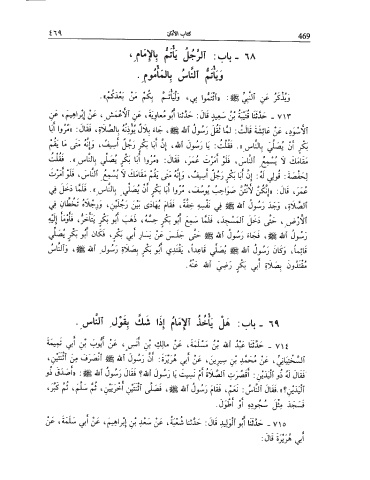 ٤٦٩ كتاب الأذان 469
٦٨ - باب: الرَّجُلُ يَأْتَمُّ بِالإِمَامِ،
وَيَأْتَمُّ النَّاسُ بِالمَأْمُومِ.
وَيُذْكَرُ عَنِ النَّبِيِّ ﷺ: «ائْتَمُّوا بِي، وَلْيَأْتَمَّ بِكُمْ مَنْ بَعْدَكُمْ».
٧١٣ - حَدَّثَنَا قُتَيْبَةُ بْنُ سَعِيدٍ قَالَ: حَدَّثَنَا أَبُو مُعَاوِيَةَ، عَنِ الأَعْمَشِ، عَنْ إِبْرَاهِيمَ، عَنِ
الأَسْوَدِ، عَنْ عَائِشَةَ قَالَتْ: لَمَّا ثَقُلَ رَسُولُ اللهِ ﷺ، جَاءَ بِلَالٌ يُؤْذِنُهُ بِالصَّلَاةِ، فَقَالَ: «مُرُوا أَبَا
بَكْرٍ أَنْ يُصَلِّيَ بِالنَّاسِ». فَقُلْتُ: يَا رَسُولَ اللهِ، إِنَّ أَبَا بَكْرٍ رَجُلٌ أَسِيفٌ، وَإِنَّهُ مَتَى مَا يَقُمْ
مَقَامَكَ لَا يُسْمِعُ النَّاسَ، فَلَوْ أَمَرْتَ عُمَرَ، فَقَالَ: «مُرُوا أَبَا بَكْرٍ يُصَلِّي بِالنَّاسِ». فَقُلْتُ
لِحَفْصَةَ: قُولِي لَهُ: إِنَّ أَبَا بَكْرٍ رَجُلٌ أَسِيفٌ، وَإِنَّهُ مَتَى يَقُمْ مَقَامَكَ لَا يُسْمِعُ النَّاسَ، فَلَوْ أَمَرْتَ
عُمَرَ، قَالَ: «إِنَّكُنَّ لَأَنْتُنَّ صَوَاحِبُ يُوسُفَ، مُرُوا أَبَا بَكْرٍ أَنْ يُصَلِّيَ بِالنَّاسِ». فَلَمَّا دَخَلَ فِي
الصَّلَاةِ، وَجَدَ رَسُولُ اللهِ ﷺ فِي نَفْسِهِ خِفَّةً، فَقَامَ يُهَادَى بَيْنَ رَجُلَيْنِ، وَرِجْلَاهُ تَخُطَّانِ فِي
الأَرْضِ، حَتَّى دَخَلَ المَسْجِدَ، فَلَمَّا سَمِعَ أَبُو بَكْرٍ حِسَّهُ، ذَهَبَ أَبُو بَكْرٍ يَتَأَخَّرُ، فَأَوْمَأَ إِلَيْهِ
رَسُولُ اللهِ ﷺ، فَجَاءَ رَسُولُ اللهِ ﷺ حَتَّى جَلَسَ عَنْ يَسَارِ أَبِي بَكْرٍ، فَكَانَ أَبُو بَكْرٍ يُصَلِّي
قَائِماً، وَكَانَ رَسُولُ اللهِ ﷺ يُصَلِّي قَاعِداً، يَقْتَدِي أَبُو بَكْرٍ بِصَلَاةِ رَسُولِ اللهِ ﷺ، وَالنَّاسُ
مُقْتَدُونَ بِصَلَاةِ أَبِي بَكْرٍ رَضِيَ اللهُ عَنْهُ.
٦٩ - باب: هَلْ يَأْخُذُ الإِمَامُ إِذَا شَكَّ بِقَوْلِ النَّاسِ.
٧١٤ - حَدَّثَنَا عَبْدُ اللهِ بْنُ مَسْلَمَةَ، عَنْ مَالِكِ بْنِ أَنَسٍ، عَنْ أَيُّوبَ بْنِ أَبِي تَمِيمَةَ
السَّخْتِيَانِيِّ، عَنْ مُحَمَّدِ بْنِ سِيرِينَ، عَنْ أَبِي هُرَيْرَةَ: أَنَّ رَسُولَ اللهِ ﷺ انْصَرَفَ مِنَ اثْنَتَيْنِ،
فَقَالَ لَهُ ذُو اليَدَيْنِ: أَقَصُرَتِ الصَّلَاةُ أَمْ نَسِيتَ يَا رَسُولَ اللهِ؟ فَقَالَ رَسُولُ اللهِ ﷺ: «أَصَدَقَ ذُو
اليَدَيْنِ؟» فَقَالَ النَّاسُ: نَعَمْ، فَقَامَ رَسُولُ اللهِ ﷺ، فَصَلَّى اثْنَتَيْنِ أُخْرَيَيْنِ، ثُمَّ سَلَّمَ، ثُمَّ كَبَّرَ،
فَسَجَدَ مِثْلَ سُجُودِهِ أَوْ أَطْوَلَ.
٧١٥ - حَدَّثَنَا أَبُو الوَلِيدِ قَالَ: حَدَّثَنَا شُعْبَةُ، عَنْ سَعْدِ بْنِ إِبْرَاهِيمَ، عَنْ أَبِي سَلَمَةَ، عَنْ
أَبِي هُرَيْرَةَ قَالَ: